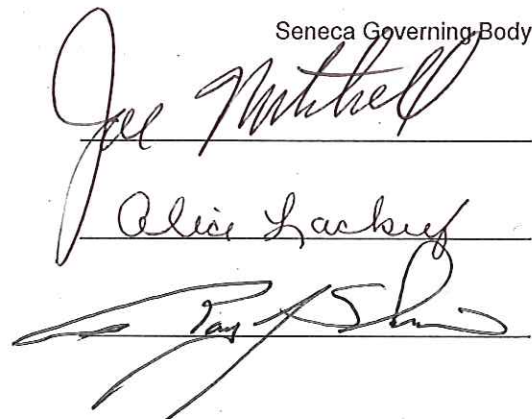 Seneca Governing Body
Joe Mitchell
Alice Lackey
Ray